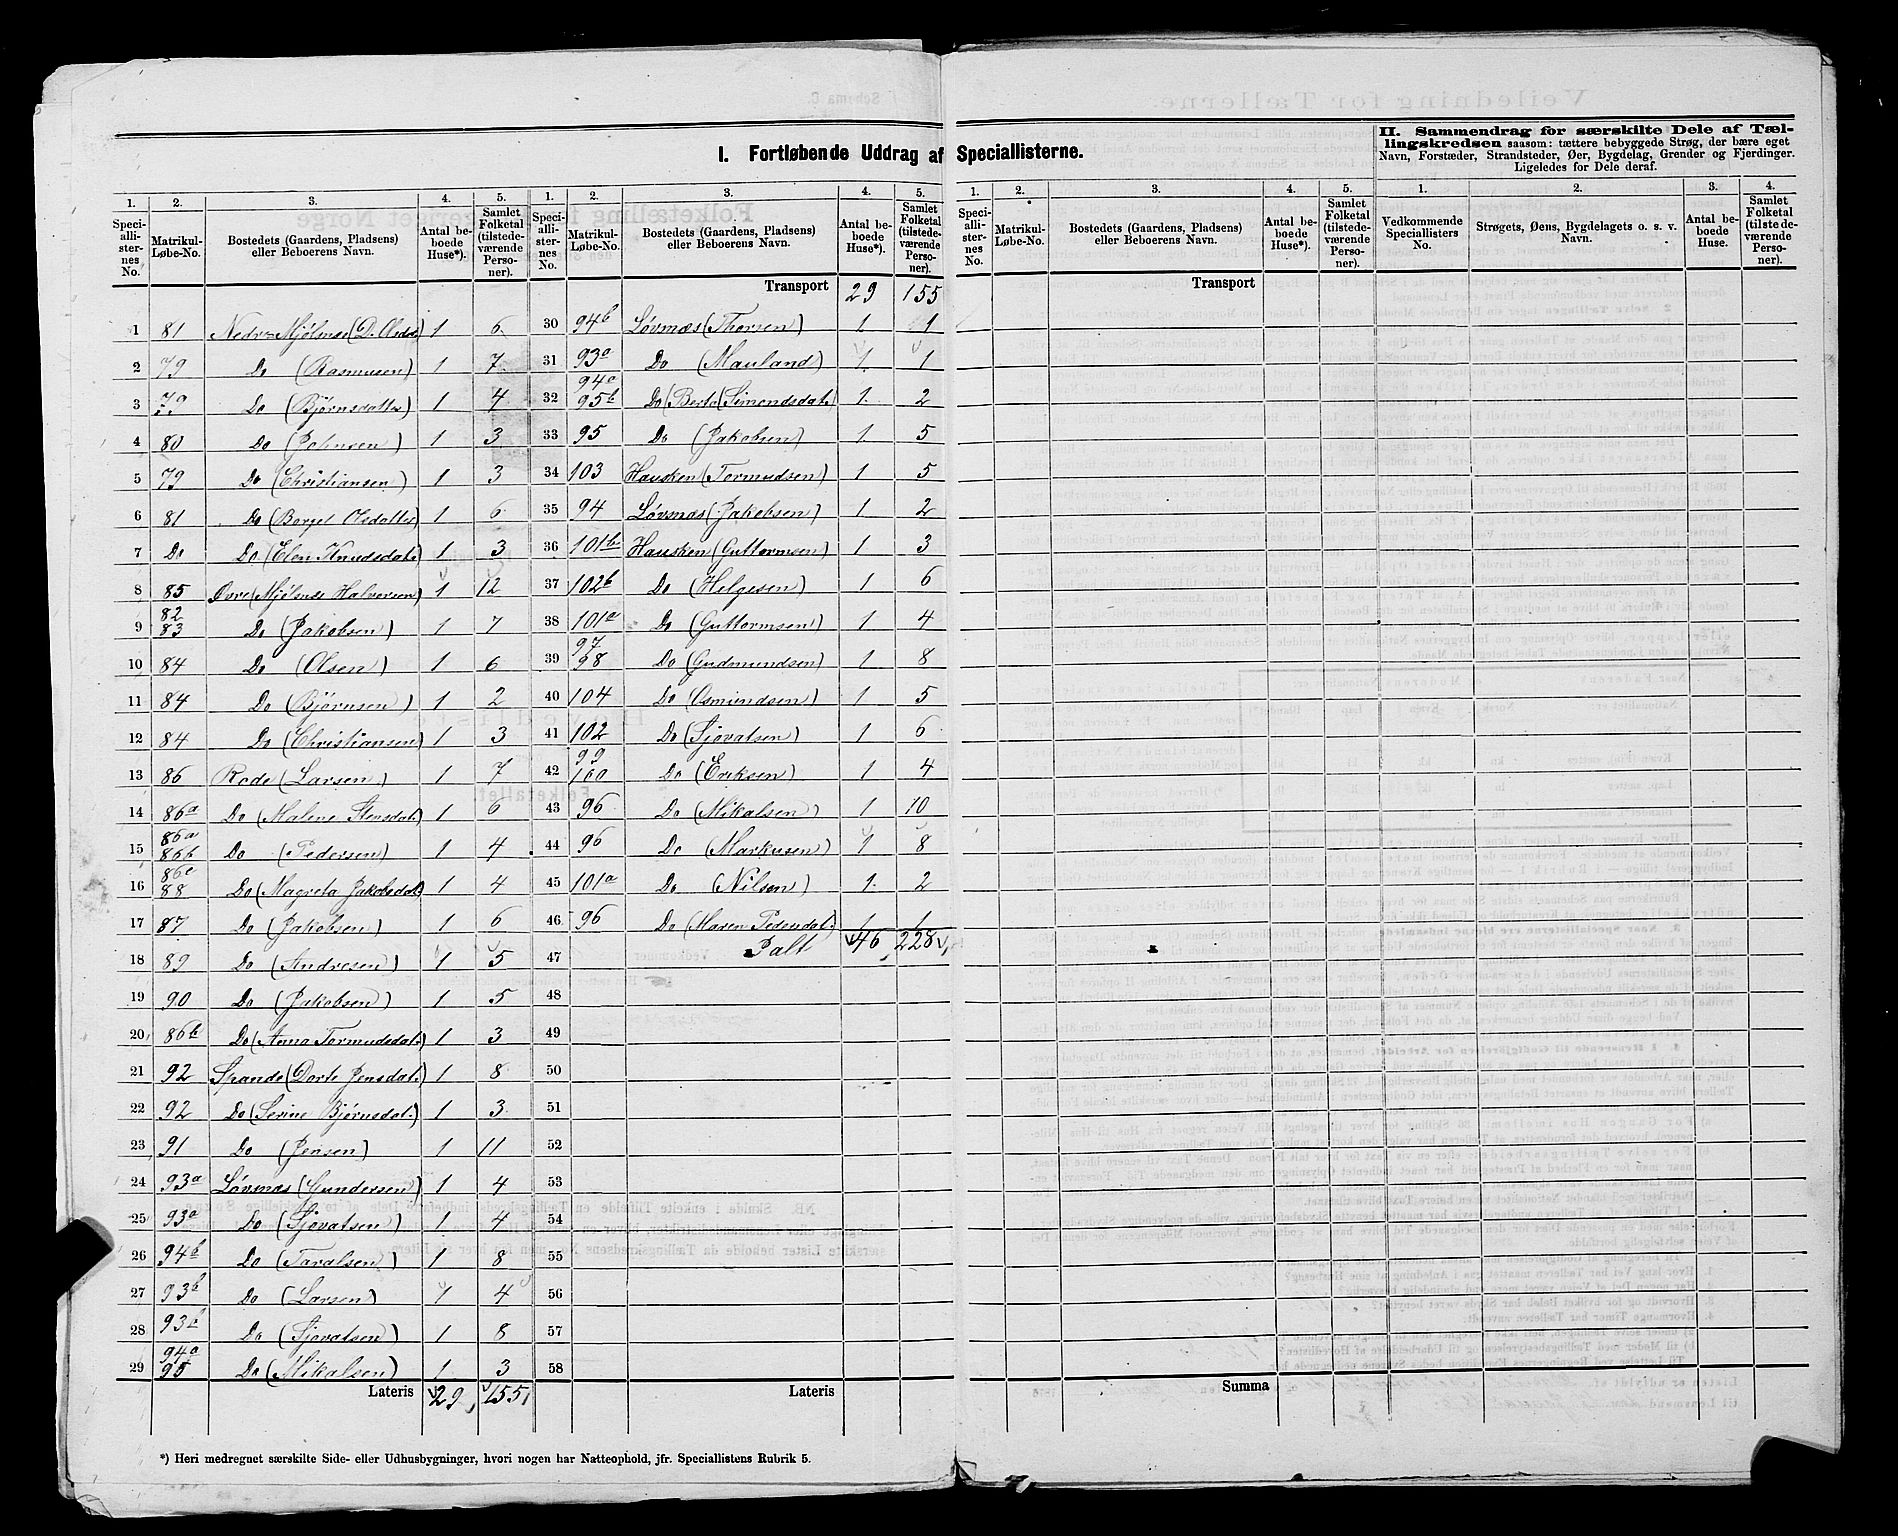 I. Fortløbende Uddrag af Speciallisterne.
II. Sammendrag for særskilte Dele af Tæl-
lingskredsen saasom: tættere bebyggede Strøg, der bære eget
Navn, Forstæder, Strandsteder, Øer, Bygdelag, Grender og Fjerdinger.
Ligeledes for Dele deraf.
1. 2. 3. 4. 5. 1. 2. 3. 4. 5. 1. 2. 3. 4. 5. 1. 2. 3. 4.
Speciallisternes No. Matrikul-Løbe-No. Bostedets (Gaardens, Pladsens) eller Beboerens Navn. Antal beboede Huse*). Samlet Folketal (tilstedeværende Personer).
Speciallisternes No. Matrikul-Løbe-No. Bostedets (Gaardens, Pladsens) eller Beboerens Navn. Antal beboede Huse*). Samlet Folketal (tilstedeværende Personer).
Speciallisternes No. Matrikul-Løbe-No. Bostedets (Gaardens, Pladsens) eller Beboerens Navn. Antal beboede Huse*). Samlet Folketal (tilstedeværende Personer).
Vedkommende Speciallisters No. Strøgets, Øens, Bygdelagets o. s. v. Navn. Antal beboede Huse. Samlet Folketal (tilstedeværende Personer).
1 81 Nedr=Mjølsnæs 1 6
2 79 Do (Rasmusen) 1 7
3 79 Do (Bjørnsdatter) 1 4
4 80 Do (Johnsen) 1 3
5 79 Do (Christiansen) 1 3
6 81 Do (Borgel Olsdatter) 1 6
7 Do Do (Elen Knudsdat.) 1 3
8 85 Øvre (Mjølsnæs Halversen) 1 12
9 82 83 Do (Jakobsen) 1 7
10 84 Do (Olsen) 1 6
11 84 Do (Bjørnsen) 1 2
12 84 Do (Christiansen) 1 3
13 86 Rode (Larsen) 1 7
14 86a Do (Malene Stensdat.) 1 6
15 86a 86b Do (Pedersen) 1 4
16 86c 88 Do (Magreta Jakobsdat.) 1 4
17 87 Do (Jakobsen) 1 6
18 89 Do (Andresen) 1 5
19 90 Do (Jakobsen) 1 5
20 86b Do (Anna Tormudsdat.) 1 3
21 92 Spande (Dorte Jensdat.) 1 8
22 92 Do (Serine Bjørnsdat.) 1 3
23 91 Do (Jensen) 1 11
24 93a Løvsnæs (Gundersen) 1 4
25 93a Do (Sjovatsen) 1 4
26 94b Do (Taralsen) 1 8
27 93b Do (Larsen) 1 4
28 93b Do (Sjovatsen) 1 8
29 94a 95 Do (Mikalsen) 1 3
Lateris 29 155
Transport 29 155
30 94b Løvsnæs (Thorsen) 1 1
31 93a Do (Mauland) 1 1
32 94a 95b Do (Berta (Simondsdat.) 1 2
33 95 Do (Jakobsen) 1 5
34 103 Hausken (Tormudsen) 1 5
35 94 Løvsnæs (Jakobsen) 1 2
36 101b Hausken (Guttormsen) 1 3
37 102b Do (Helgesen) 1 6
38 101a Do (Guttormsen) 1 4
39 97 98 Do (Gudmundsen) 1 8
40 104 Do (Osmundsen) 1 5
41 102 Do (Sjovatsen) 1 6
42 99 100 Do (Eriksen) 1 4
43 96 Do (Mikalsen) 1 10
44 96 Do (Markusen) 1 8
45 101a Do (Nilsen) 1 2
46 96 Do (Maren Pedersdat.) 1 1
47 Ialt 46 228
48
49
50
51
52
53
54
55
56
57
58
Lateris
Transport
Summa
*) Heri medregnet særskilte Side- eller Udhusbygninger, hvori nogen har Natteophold, jfr. Speciallistens Rubrik 5.